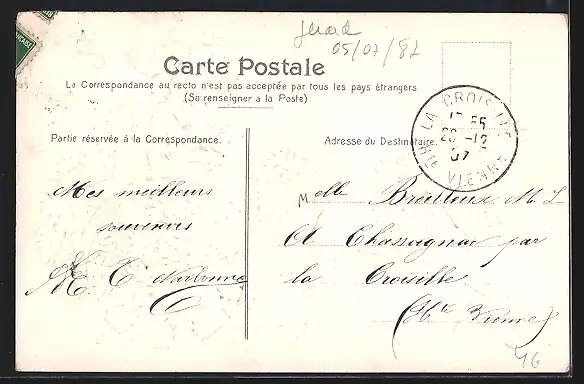 FRANÇAISE
05/07/82
Carte Postale
La Correspondance au recto n'est pas acceptée par tous les pays étrangers
(Se renseigner a la Poste)
LA CROISILLE
17 55
28 -12
07
HTE VIENNE
Partie réservée à la Correspondance.
Adresse du Destinataire.
Mes meilleurs
souvenirs
M. C. Narbonne
Melle Breilloux M. L
A Chassagnac par
la Croisille
(Hte Vienne)
46